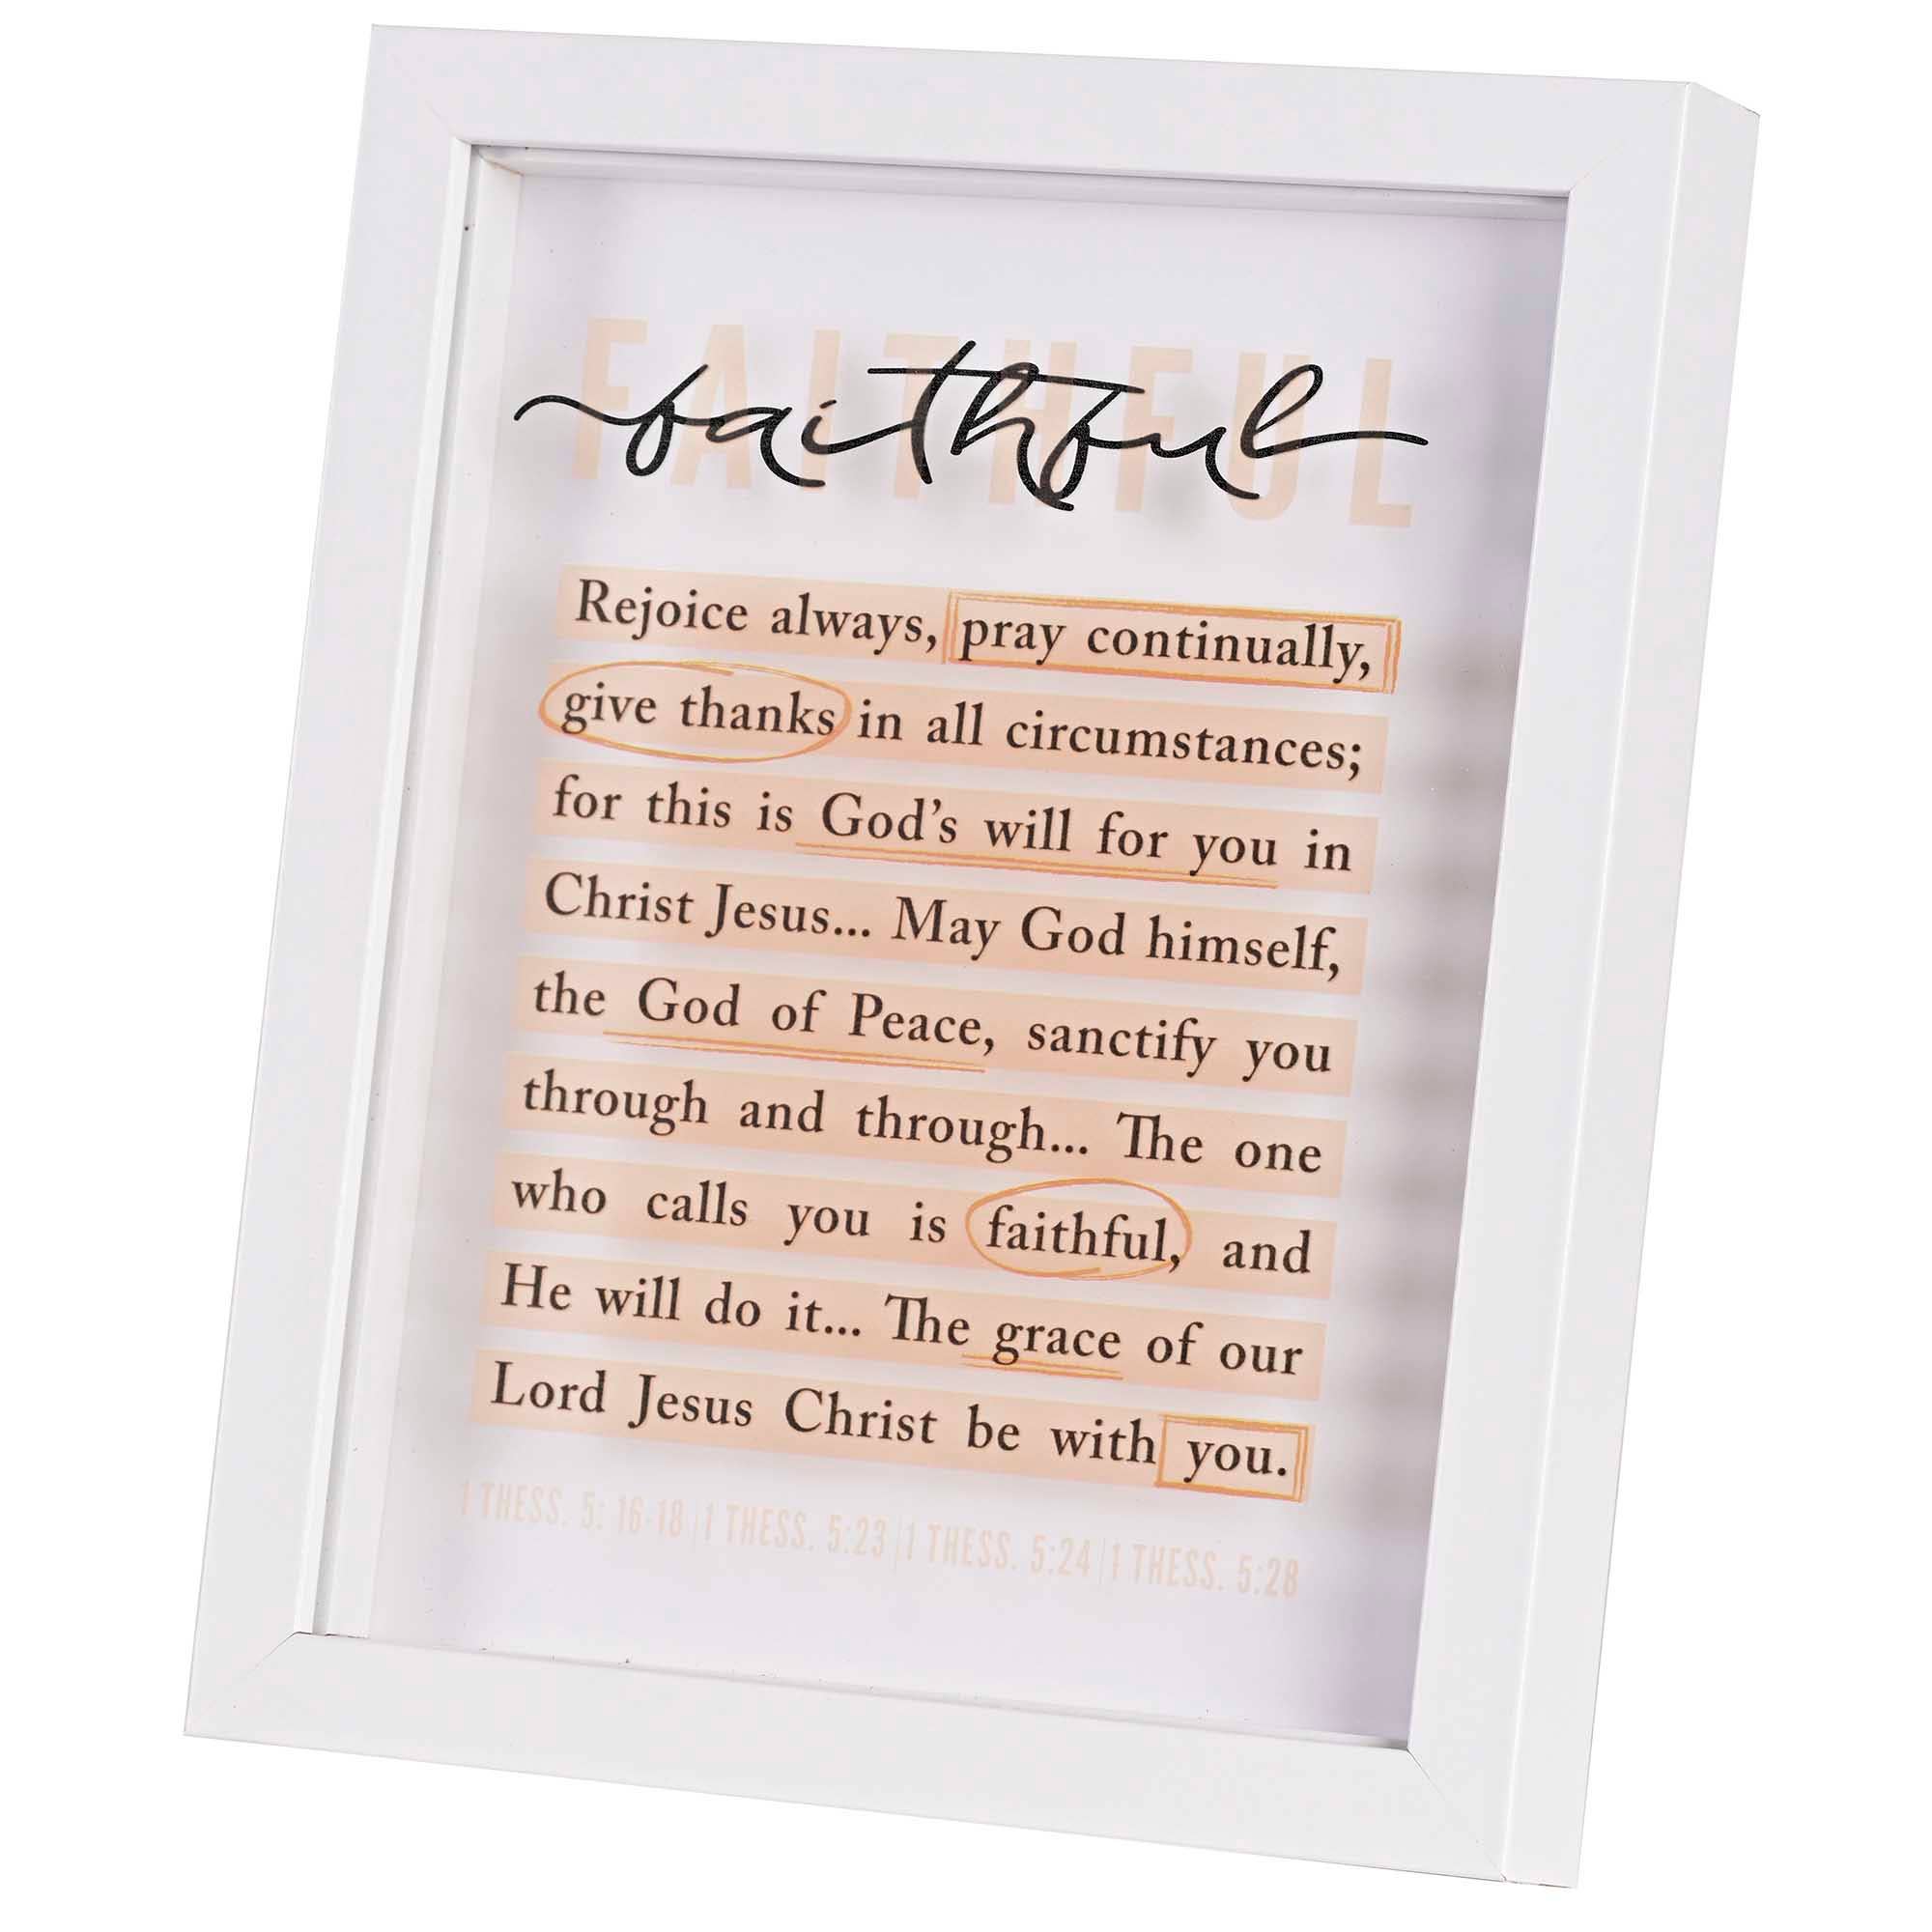 FAITHFUL
faithful
Rejoice always, pray continually,
give thanks in all circumstances;
for this is God’s will for you in
Christ Jesus... May God himself,
the God of Peace, sanctify you
through and through... The one
who calls you is faithful, and
He will do it... The grace of our
Lord Jesus Christ be with you.
1 THESS. 5: 16-18 | 1 THESS. 5:23 | 1 THESS. 5:24 | 1 THESS. 5:28